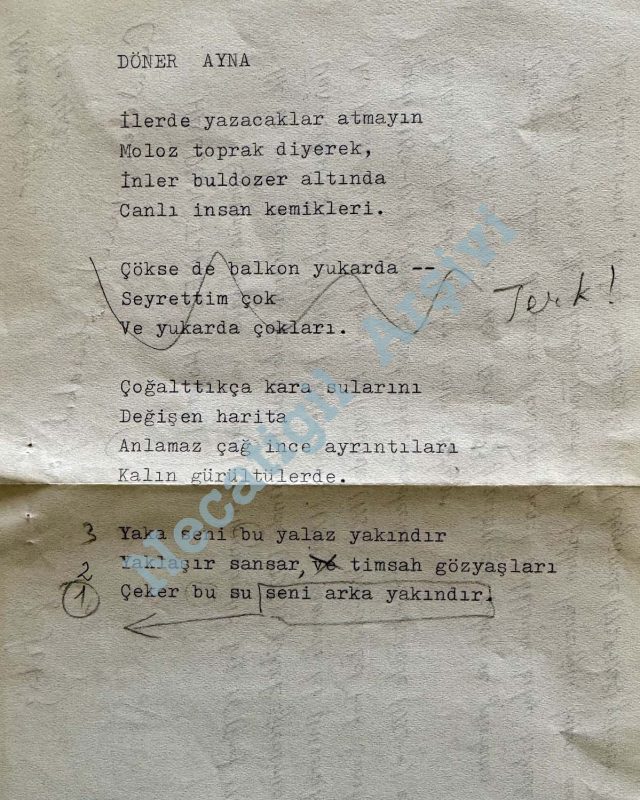 DÖNER AYNA
İlerde yazacaklar atmayın
Moloz toprak diyerek,
İnler buldozer altında
Canlı insan kemikleri.
Çökse de balkon yukarda --
Seyrettim çok
Ve yukarda çokları.
Terk!
Çoğalttıkça kara sularını
Değişen harita
Anlamaz çağ ince ayrıntıları
Kalın gürültülerde.
3 Yaka seni bu yalaz yakındır
2 Yaklaşır sansar, ve timsah gözyaşları
1 Çeker bu su seni arka yakındır.
Necatigil Arşivi